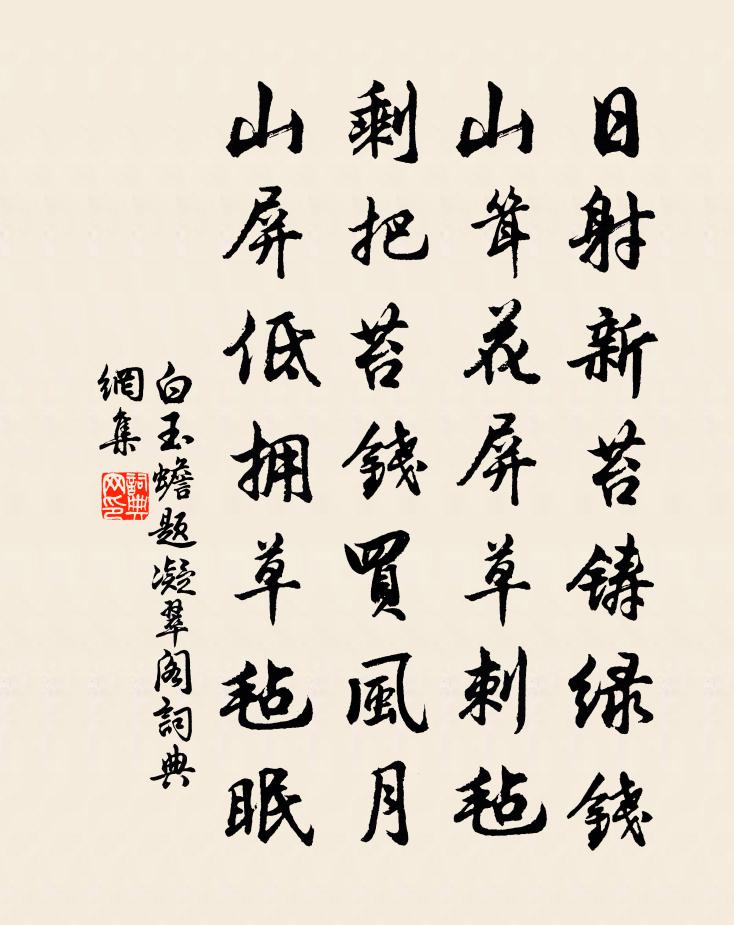 日射新苔铸绿錢
山聳花屏草刺毡
剩把苔錢買風月
山屏低拥草毡眠
白玉蟾題凝翠阁詞典
網集
詞典
网印